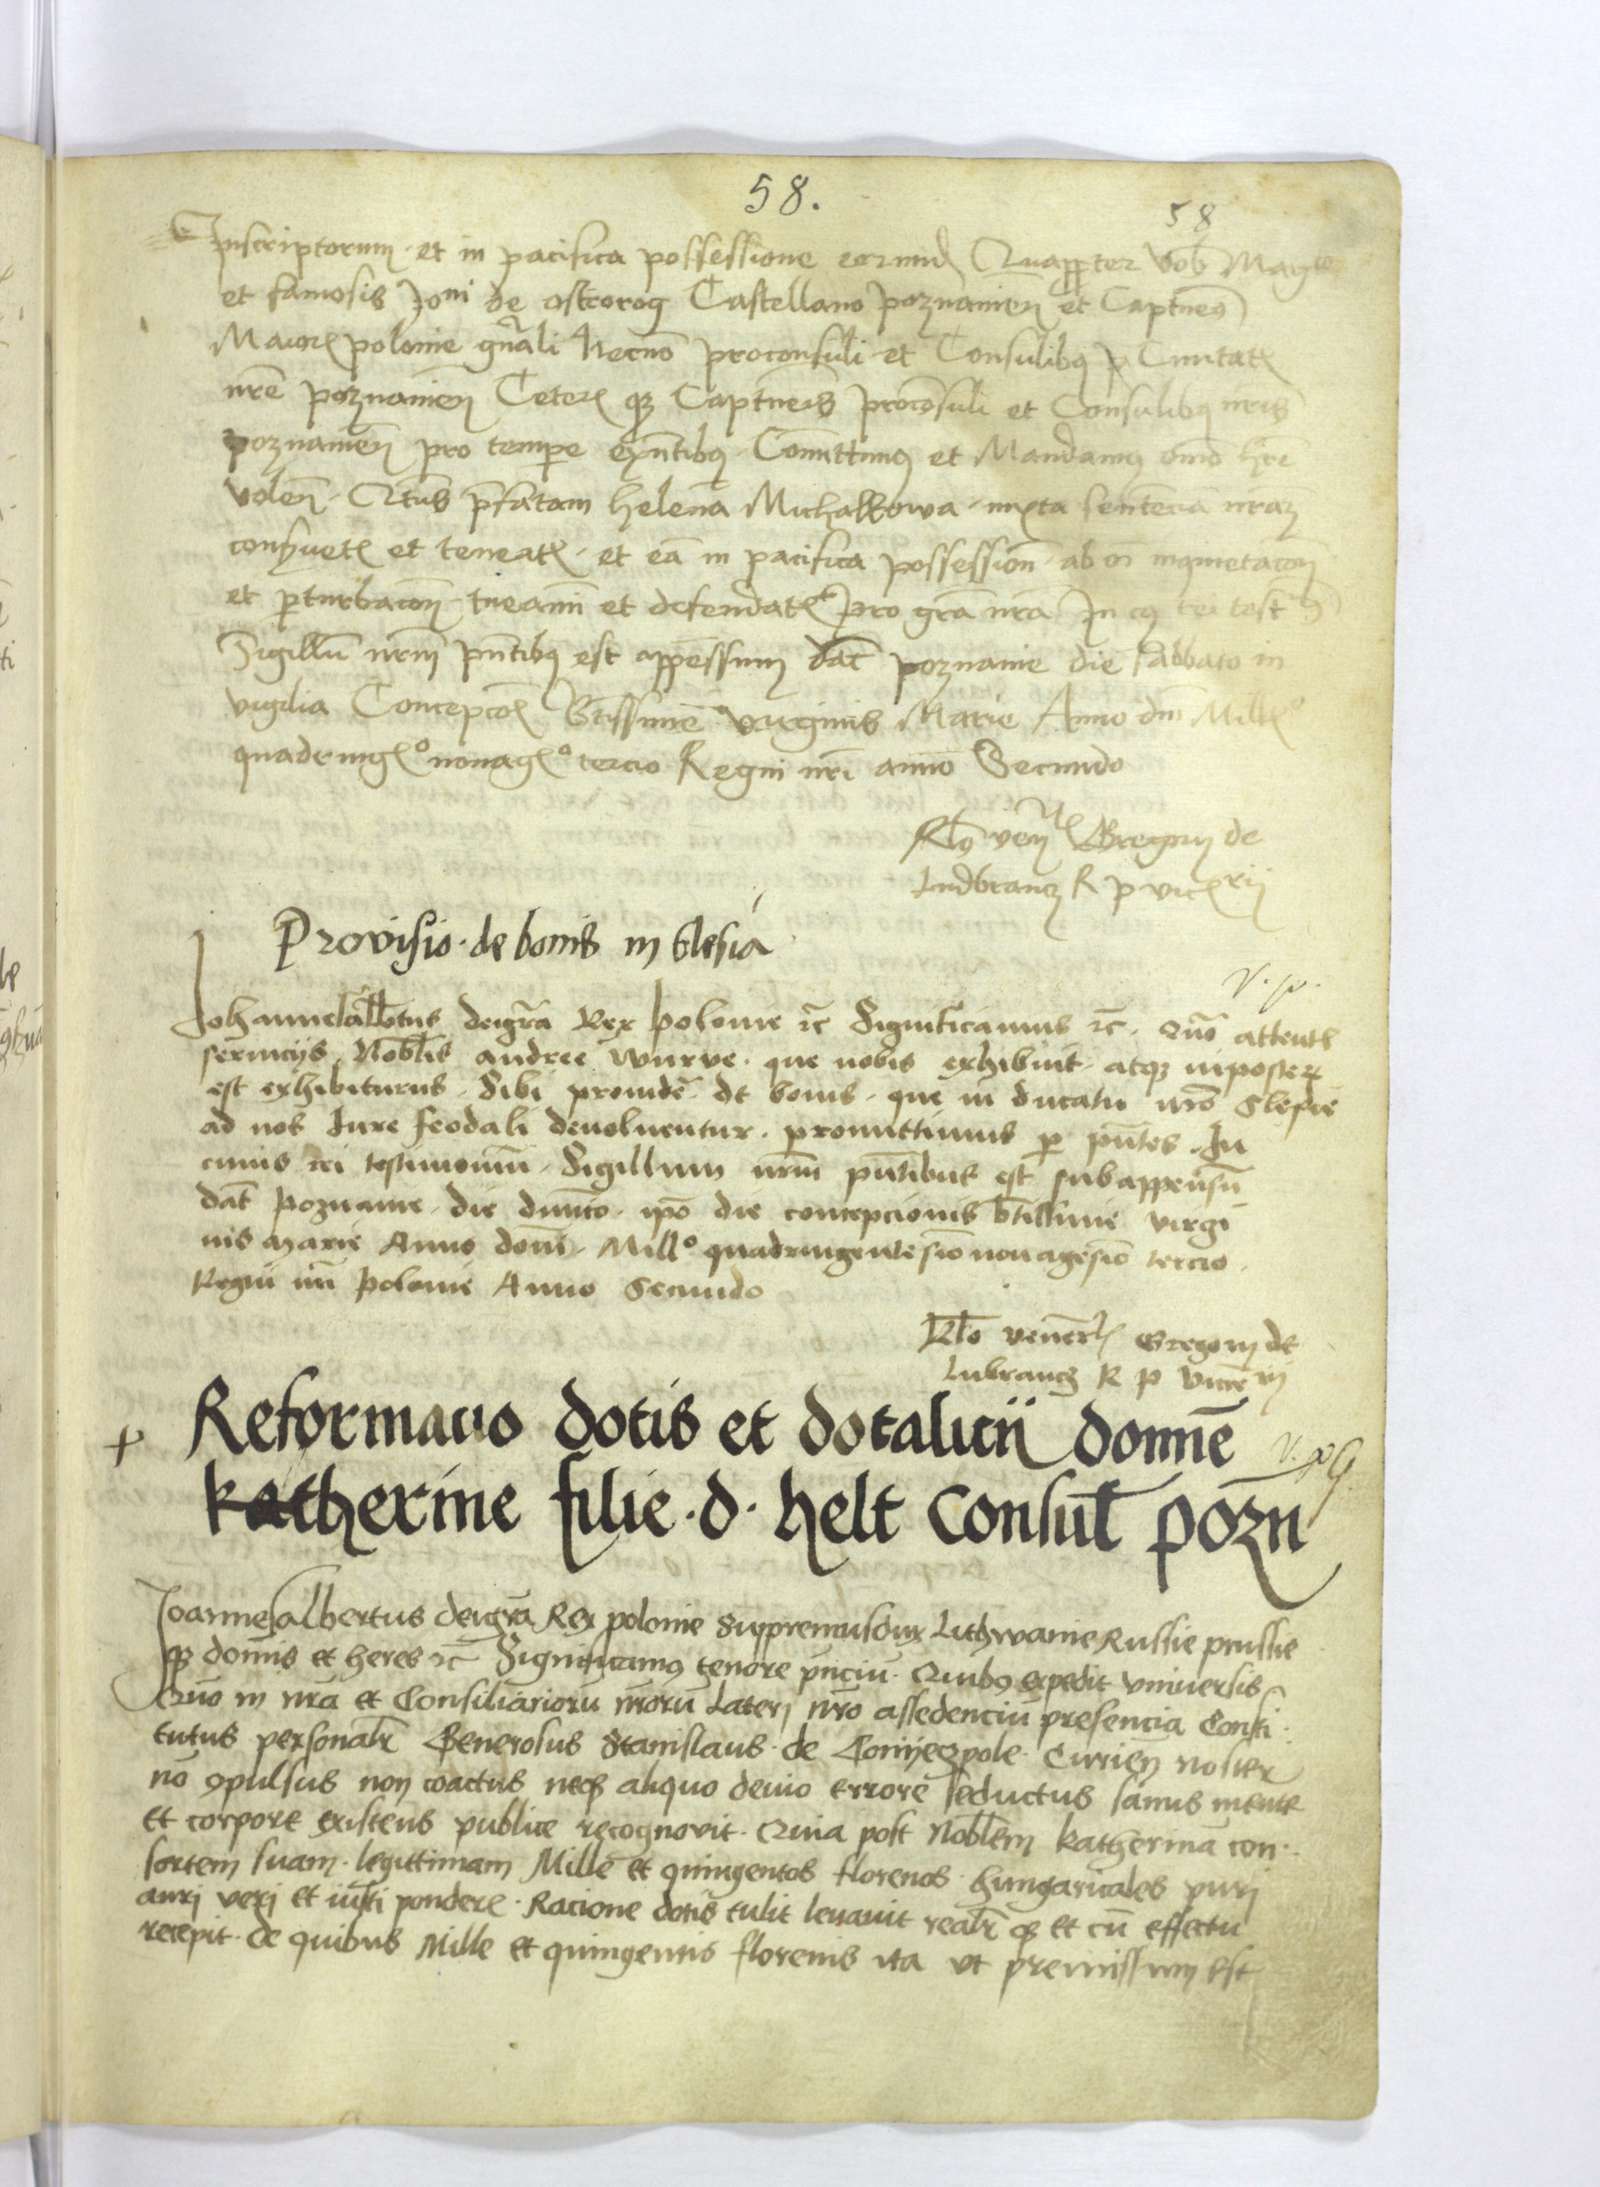 58.
58
Inscriptorum et in pacifica possessione eorund Quappter Vob Magco
et famosis Joni de ostrorog Castellano poznanien et Captneo
Maioris polonie gnali Necno proconsuli et Consulibus Ciuitat
nre poznanien Ceteris qz Captneis proconsuli et Consulibus nris
poznanien pro tempe exntibus Comittimus et Mandamus omo hre
volen Qtus pfatam helena Michalkowa iuxta sentencia nram
conseruetis et teneatis et ea in pacifica possession ab oi inquietacon
et pturbacon tueamini et defendatis pro gra nra In cuius rei test
Sigillu nrm pntibus est appessum dat poznanie die sabbato in
vigilia Concepcois Btissime virginis Marie Anno dni Mill
quadringo nonago tercio Regni nri anno Secundo
Rlo ven Gregorij de
Ludbrancz R p vicrij
Provisio de bonis in Slesia
V. p.
Johannesalbtus deigra Rex polonie rc Significamus rc. Quo attentis
seruicijs Noblis andree wurve que nobis exhibuit atqz inposter
est exhibiturus Sibi prouide de bonis que in ducatu nro Slesie
ad nos Jure feodali deuoluentur promittimus p pntes In
cuius rei testimonium Sigillum nrm pntibus est subappensu
dat poznanie die dnico ipo die concepcionis btissime virgi
nis marie Anno domi Millo quadringentesio nonagesio tercio
Regni nri polonie Anno Secundo
Rlo venerlis Gregorij de
Lubrancz R p vicerij
Reformacio dotis et dotalicii domne
katherine filie d. helt Consul pozn
V. p G.
Joannesalbertus deigra Rex polonie Supremusdux Lithwanie Russie prussie
qz domns et heres rc Significamus tenore pnciu Quibus expedit vniuersis
Quo in nra et Consiliarioru nroru Lateri nro assedenciu presencia Consti
tutus personalr Generosus Stanislaus de Conyeczpole Curien noster
no opulsus non coactus neqz aliquo deuio errore seductus sanus mente
et corpore existens publice recognovit Quia post Noblem katherina con
sortem suam legittimam Mille et quingentos florenos hungaricales puri
auri veri et iusti ponderis Racione dotis tulit leuauit realr qz et cu effectu
recepit de quibus Mille et quingentis florenis ita vt premissum est